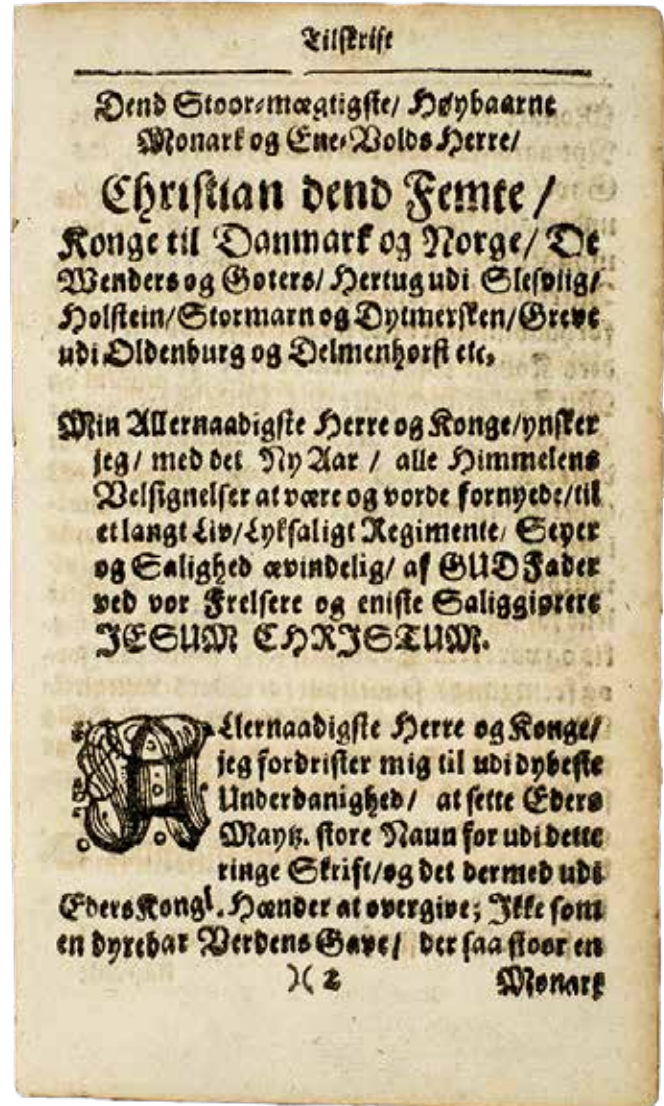 Tilskrift
Dend Stoor-mægtigste/ Høybaarne
Monark og Ene-Volds Herre/
Christian dend Femte/
Konge til Danmark og Norge/ De
Wenders og Goters/ Hertug udi Slesvig/
Holstein/Stormarn og Dytmersken/Greve
udi Oldenburg og Delmenhorst etc.
Min Allernaadigste Herre og Konge/ynsker
jeg/ med det Ny Aar / alle Himmelens
Velsignelser at være og vorde fornyede/til
et langt Liv/Lyksaligt Regimente/ Seyer
og Salighed ævindelig/ af GUD Fader
ved vor Frelsere og eniste Saliggiørere
JESUM CHRISTUM.
ALlernaadigste Herre og Konge/
jeg fordrister mig til udi dybeste
Underdanighed/ at sette Eders
Maytz. store Naun for udi dette
ringe Skrift/og det dermed udi
Eders Kongl. Hænder at overgive; Ikke som
en dyrebar Verdens Gave/ der saa stoor en
)( 2 Monark